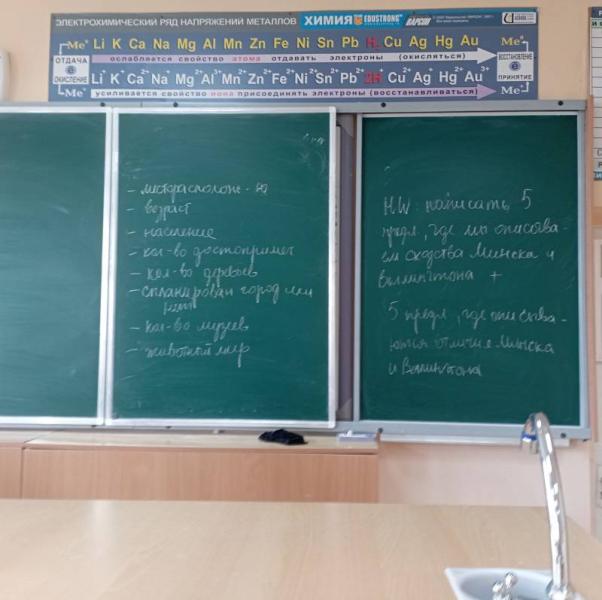 ЭЛЕКТРОХИМИЧЕСКИЙ РЯД НАПРЯЖЕНИЙ МЕТАЛЛОВ ХИМИЯ EDUSTRONG ВАРСОН
Me⁰ Li K Ca Na Mg Al Mn Zn Fe Ni Sn Pb H₂ Cu Ag Hg Au Me⁰
ОТДАЧА e ОКИСЛЕНИЕ
ослабляется свойство атома отдавать электроны (окисляться)
ВОССТАНОВЛЕНИЕ e ПРИНЯТИЕ
Me⁺ Li⁺ K⁺ Ca²⁺ Na⁺ Mg²⁺ Al³⁺ Mn²⁺ Zn²⁺ Fe²⁺ Ni²⁺ Sn²⁺ Pb²⁺ 2H⁺ Cu²⁺ Ag⁺ Hg²⁺ Au³⁺ Me⁺
усиливается свойство иона присоединять электроны (восстанавливаться)
- месторасположе-
- возраст
- население
- кол-во достопримет
- кол-во деревьев
- спланирован город или
нет
- кол-во музеев
- животный мир
HW: написать 5
предл, где мы описыва-
ем сходства Минска и
Веллингтона +
5 предл, где описыва-
ются отличия Минска
и Веллингтона